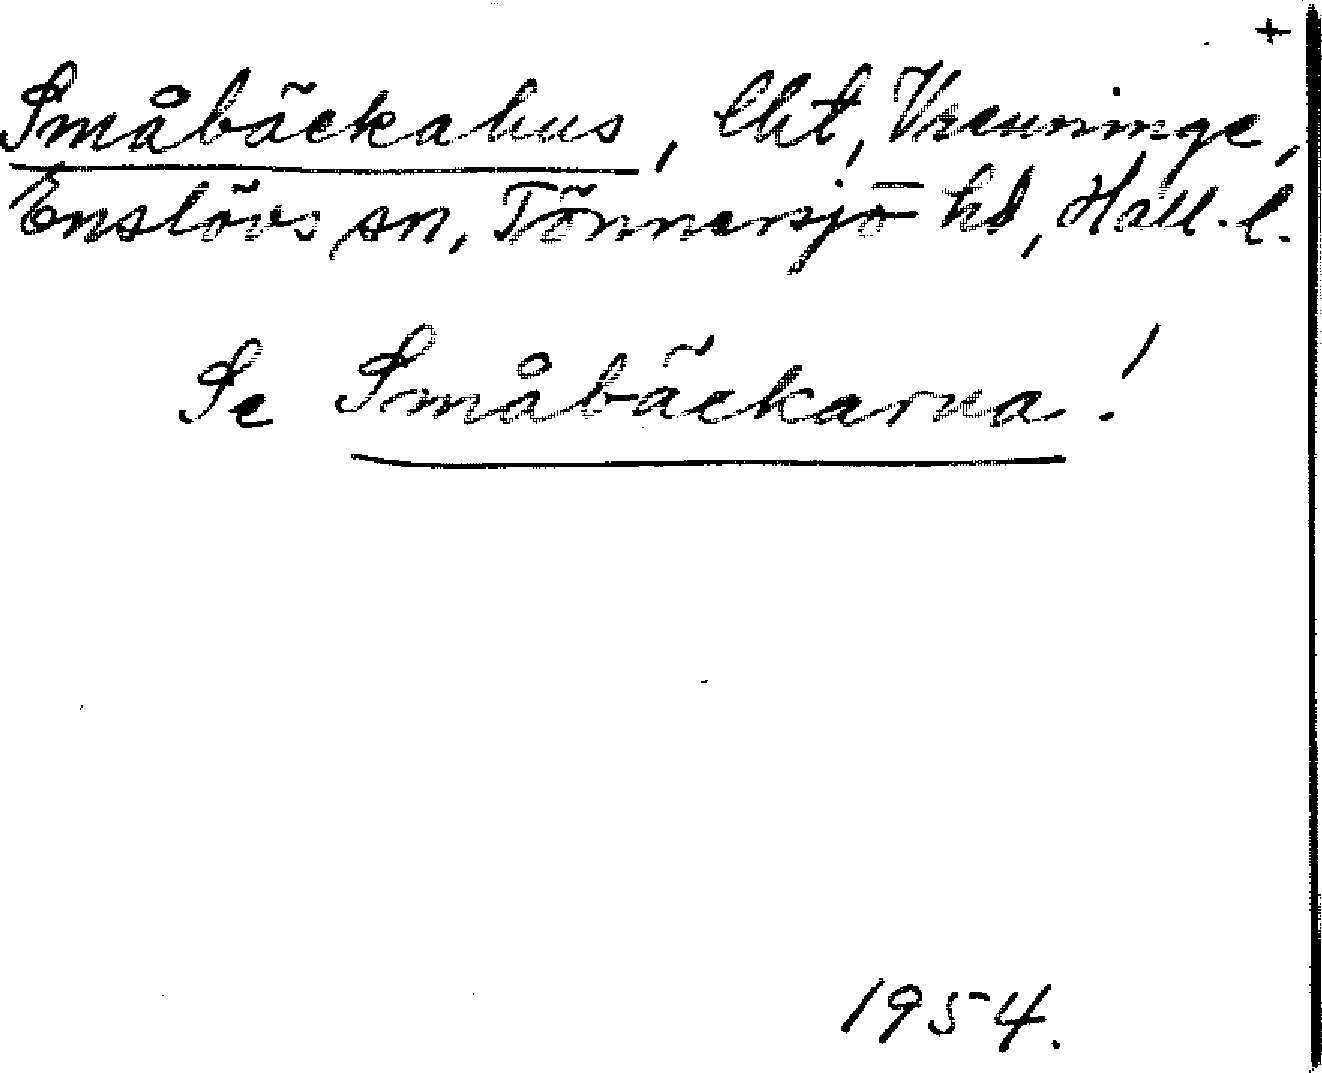 +
Småbäckahus, lht, Vrenninge,
Enslövs sn, Tönnersjö hd, Hall. l.
Se Småbäckarna!
1954.